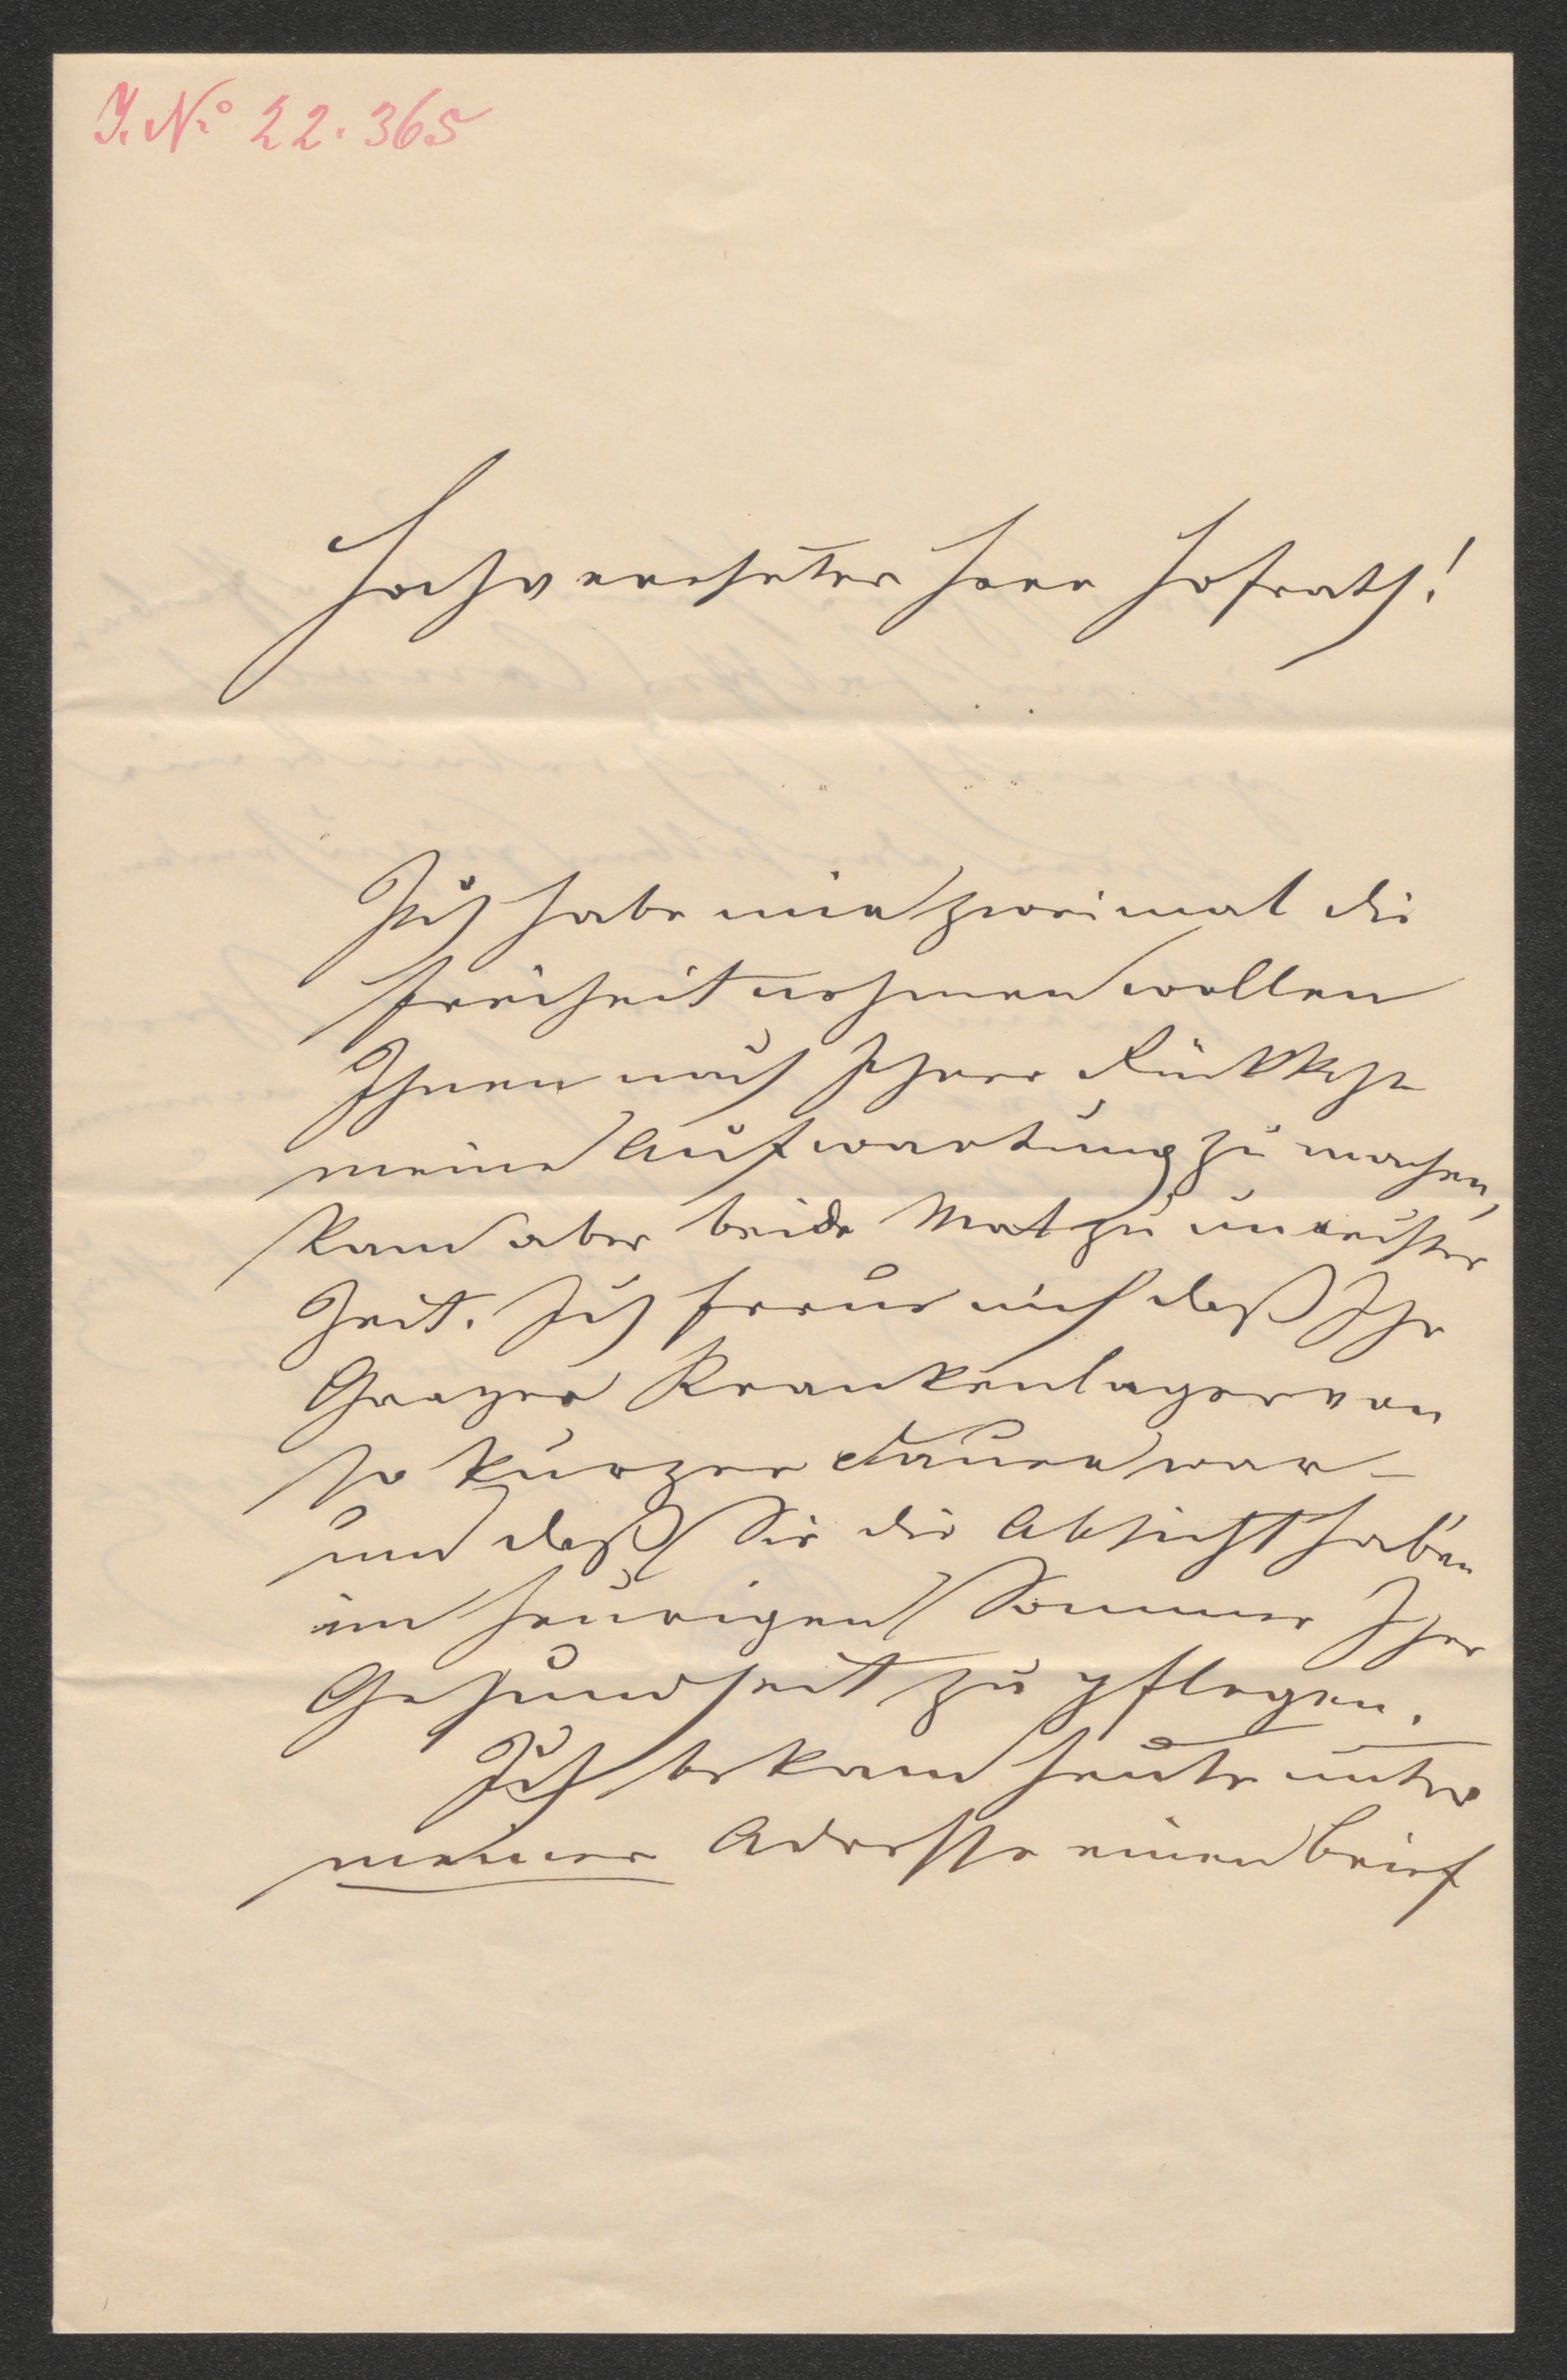 J. No 22.365
Hochverehrter Herr Hofrath!
Ich habe mir zweimal die
Freiheit nehmen wollen
Ihnen nach Ihrer Rückkehr
meine Aufwartung zu machen,
kam aber beide Mal zu unrechter
Zeit. Ich freue mich daß Ihr
Grazer Krankenlager von
so kurzer Dauer war –
und daß Sie die Absicht haben
im heurigen Sommer Ihre
Gesundheit zu pflegen.
Ich bekam heute unter
meiner Adresse einen Brief